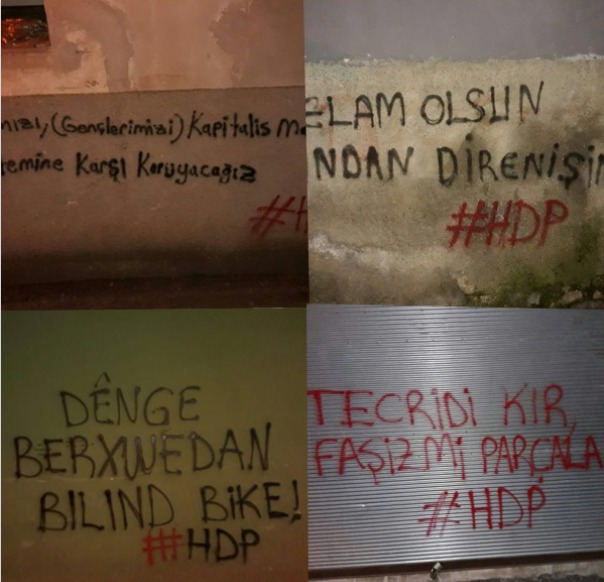 mızı, (Gençlerimizi) Kapitalis m
emine Karşı Koruyacağız
#H
ELAM OLSUN
NDAN DİRENİŞİN
#HDP
DÊNGE
BERXWEDAN
BILIND BiKE!
#HDP
TECRİDİ KIR,
FAŞİZMİ PARÇALA
#HDP